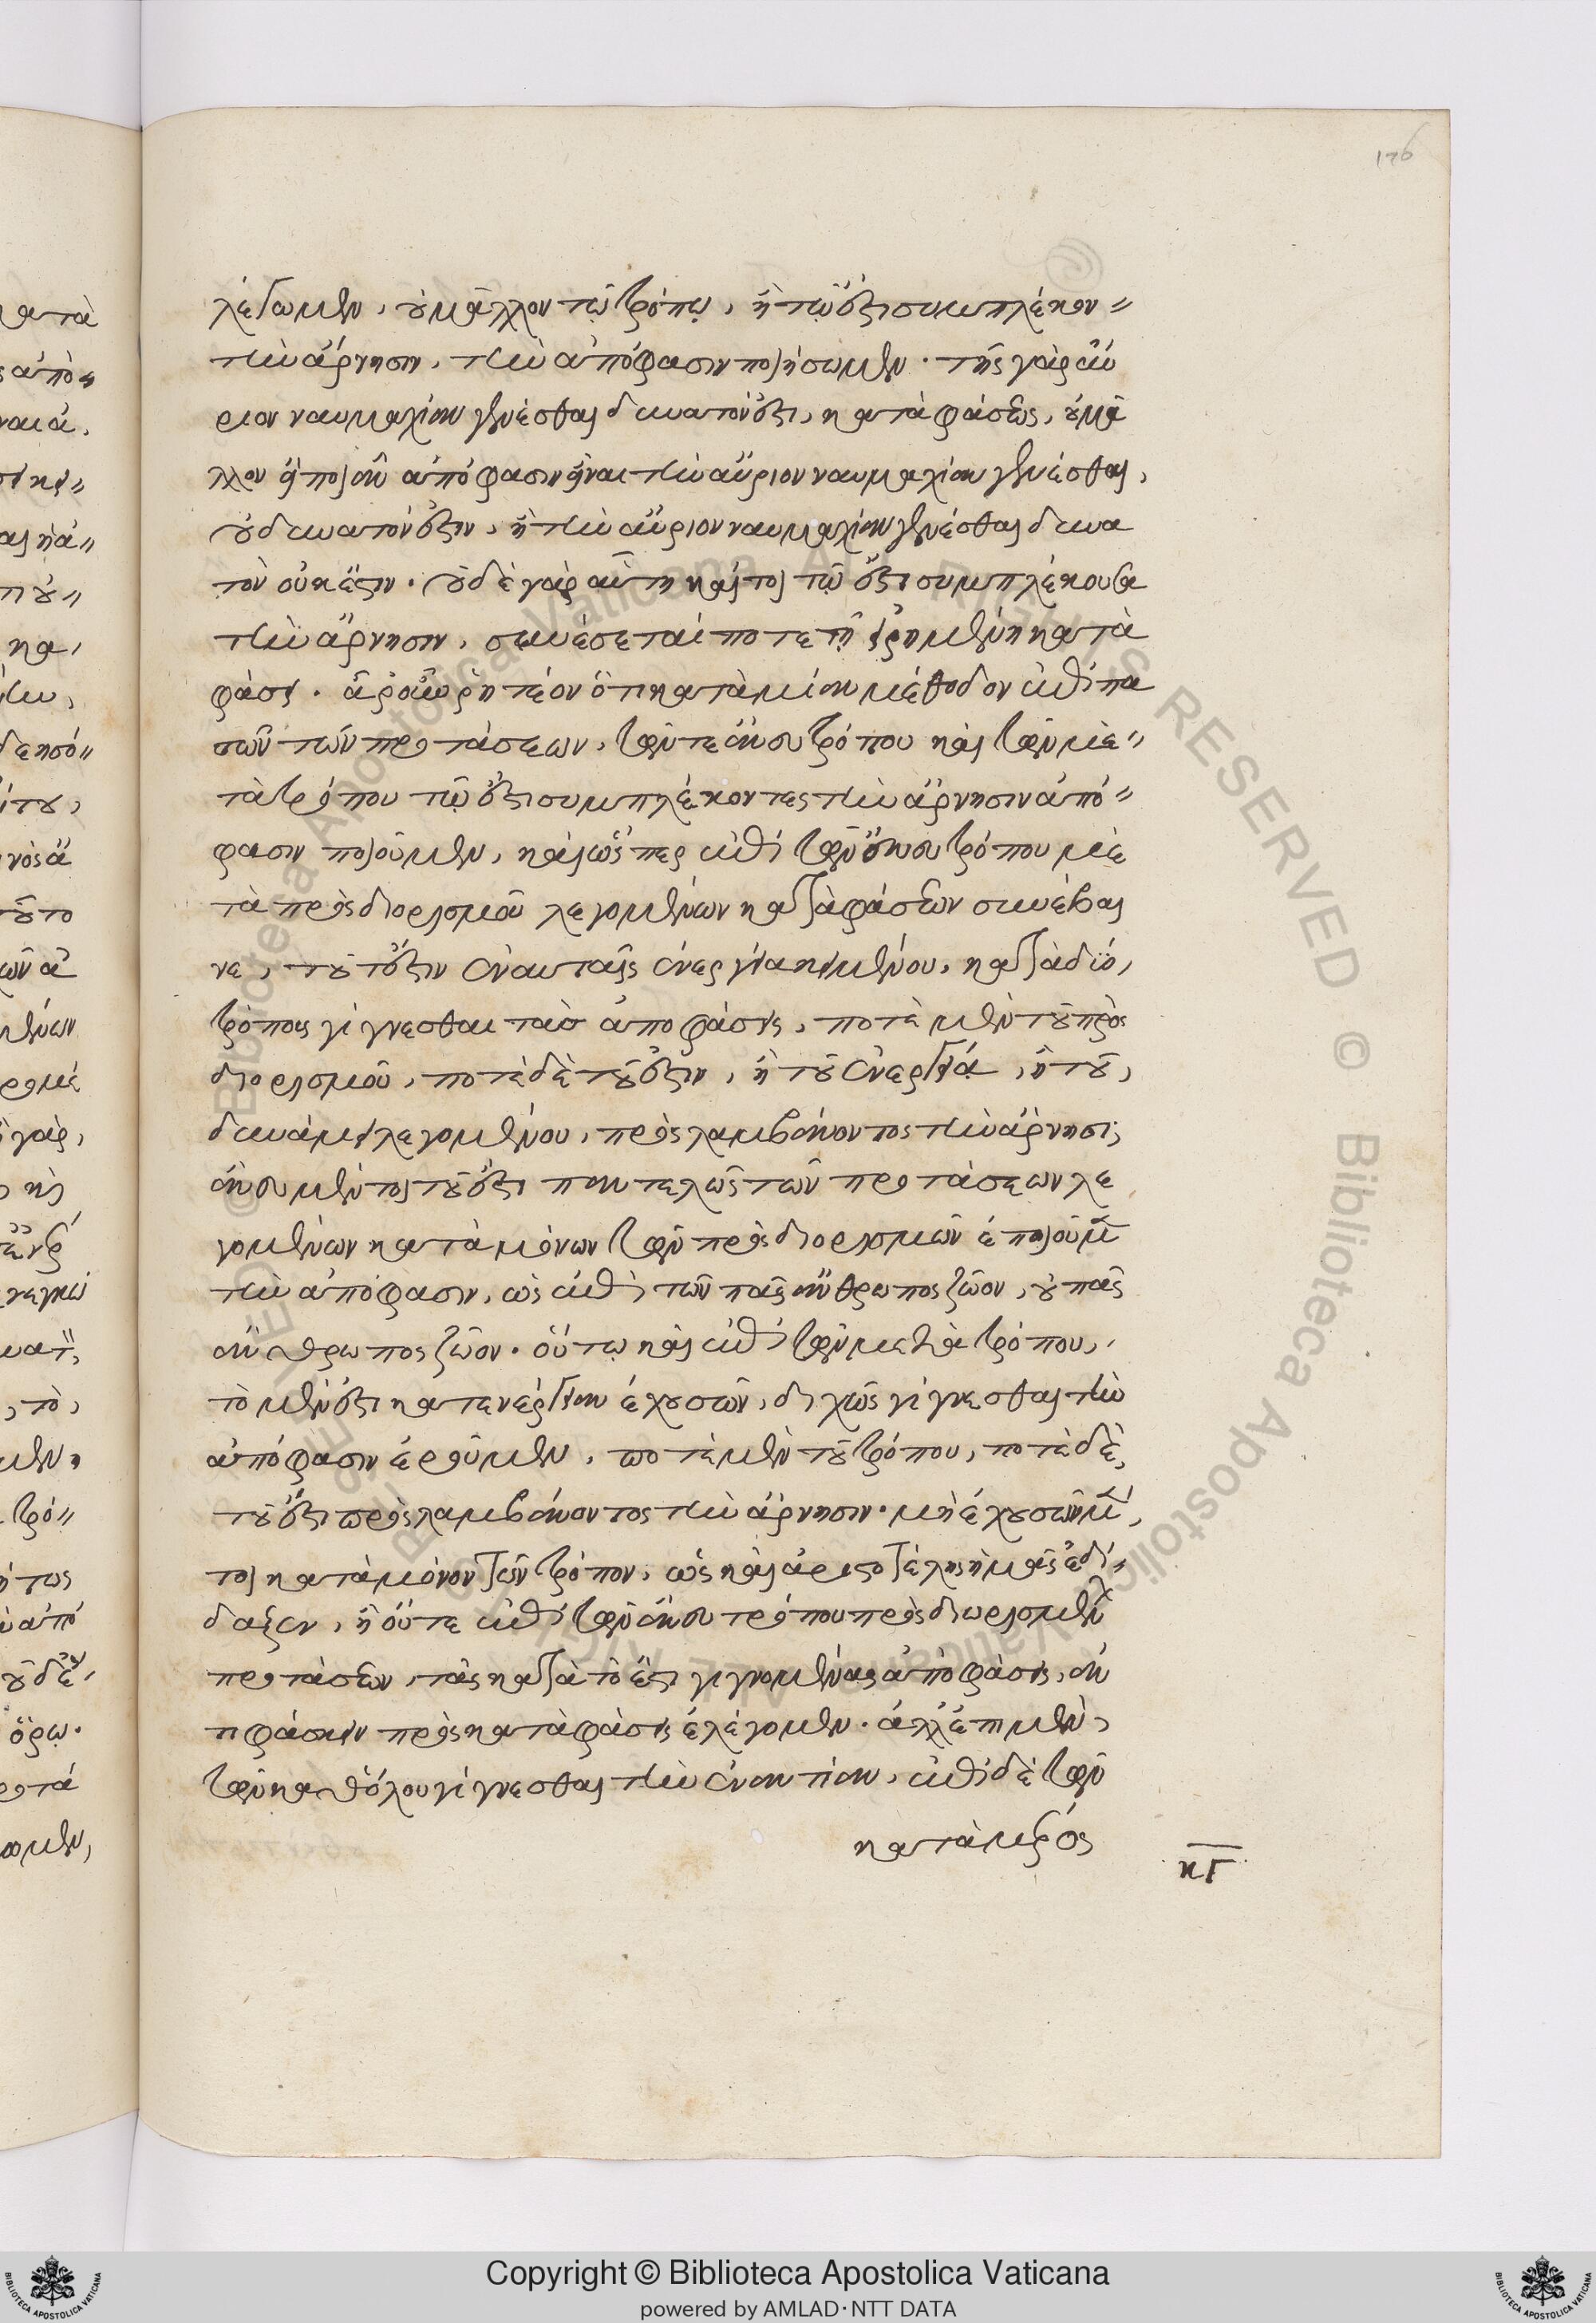 176
λέγωμεν, οὐ μᾶλλον τῷ τρόπῳ, ἢ τῷ ἔστι συμπλέκον-
τὴν ἄρνησιν, τὴν ἀπόφασιν ποιήσωμεν. τῆς γὰρ αὔ
ριον ναυμαχίαν γενέσθαι δυνατόν ἐστι, καταφάσεως, οὐ μᾶ
λλον ἡ ποιοῦν ἀπόφασιν εἶναι τὴν αὔριον ναυμαχίαν γενέσθαι,
οὐ δυνατόν ἐστιν, ἢ τὴν αὔριον ναυμαχίαν γενέσθαι δυνα
τὸν οὐκ ἔστιν. οὐδὲ γὰρ αὕτη καίτοι τῷ ἔστι συμπλέκουσα
τὴν ἄρνησιν, συνέσεταί ποτε τῇ εἰρημένῃ κατα
φάσει. ἆρ' οὖν ῥητέον ὅτι κατὰ μίαν μέθοδον ἐπὶ πα
σῶν τῶν προτάσεων, τῶν τε ἄνευ τρόπου καὶ τῶν με-
τὰ τρόπου τῷ ἔστι συμπλέκοντες τὴν ἄρνησιν ἀπό-
φασιν ποιοῦμεν, καὶ ὥσπερ ἐπὶ τῶν ἄνευ τρόπου με
τὰ προσδιορισμοῦ λεγομένων καταφάσεων συνέβαι
νε, τοῦ τὸ ἔστιν ἐν αὐταῖς ἐνεργείᾳ κειμένου, κατὰ δύο,
τρόπους γίγνεσθαι τὰσ ἀποφάσεις, ποτὲ μὲν τοῦ προσ
διορισμοῦ, ποτὲ δὲ τοῦ ἔστιν, ἢ τοῦ ἐνεργείᾳ, ἢ τοῦ,
δυνάμει λεγομένου, προσλαμβάνοντος τὴν ἄρνησιν
ἄνευ μέν τοι τοῦ ἔστι παντελῶς τῶν προτάσεων λε
γομένων κατὰ μόνων τῶν προσδιορισμῶν ἐποιοῦμεν
τὴν ἀπόφασιν, ὡς ἐπὶ τῶν πᾶς ἄνθρωπος ζῶον, οὐ πᾶς
ἄνθρωπος ζῶον. οὕτω καὶ ἐπὶ τῶν μετὰ τρόπου,
τὸ μὲν ἔστι κατ' ἐνέργειαν ἐχουσῶν, διχῶς γίγνεσθαι τὴν
ἀπόφασιν ἐροῦμεν, ποτὲ μὲν τοῦ τρόπου, ποτὲ δὲ,
τοῦ ἔστι προσλαμβάνοντος τὴν ἄρνησιν. μὴ ἐχουσῶν μέν
τοι κατὰ μόνον τὸν τρόπον, ὡς καὶ ἀριστοτέλης ἡμᾶς ἐδί-
δαξεν, ἢ οὔτε ἐπὶ τῶν ἄνευ τρόπου προσδιωρισμένων
προτάσεων, τὰς κατὰ τὸ ἔστι γιγνομένας ἀποφάσεις, ἀν
τιφάσκειν πρὸς καταφάσεις ἐλέγομεν. ἀλλ' ἐπὶ μὲν,
τῶν καθόλου γίγνεσθαι τὴν ἐναντίαν, ἐπὶ δὲ τῶν
κατὰ μέρος
κγ
Copyright © Biblioteca Apostolica Vaticana
powered by AMLAD·NTT DATA